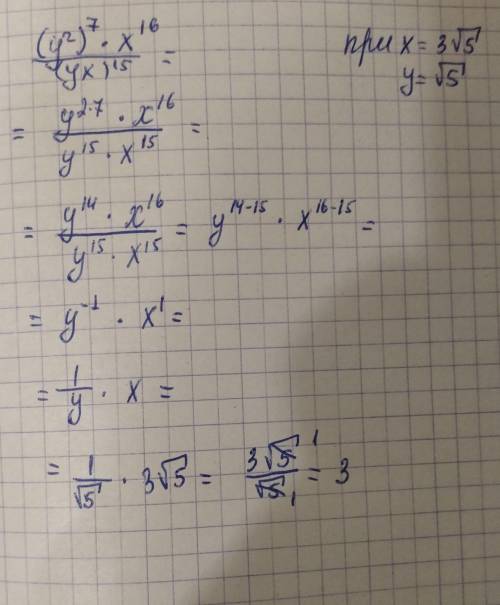 (y²)⁷ · x¹⁶ / (yx)¹⁵ =
при x = 3√5
y = √5
= y²·⁷ · x¹⁶ / y¹⁵ · x¹⁵ =
= y¹⁴ · x¹⁶ / y¹⁵ · x¹⁵ = y¹⁴⁻¹⁵ · x¹⁶⁻¹⁵ =
= y⁻¹ · x¹ =
= 1/y · x =
= 1/√5 · 3√5 = 3√5 ¹ / √5 ₁ = 3